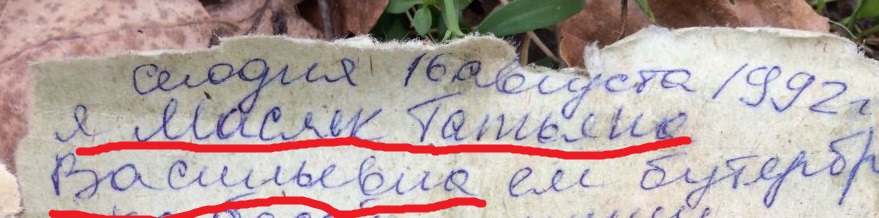 сегодня 16 августа 1992г
я Масляк Татьяна
Васильевна ем бутербр